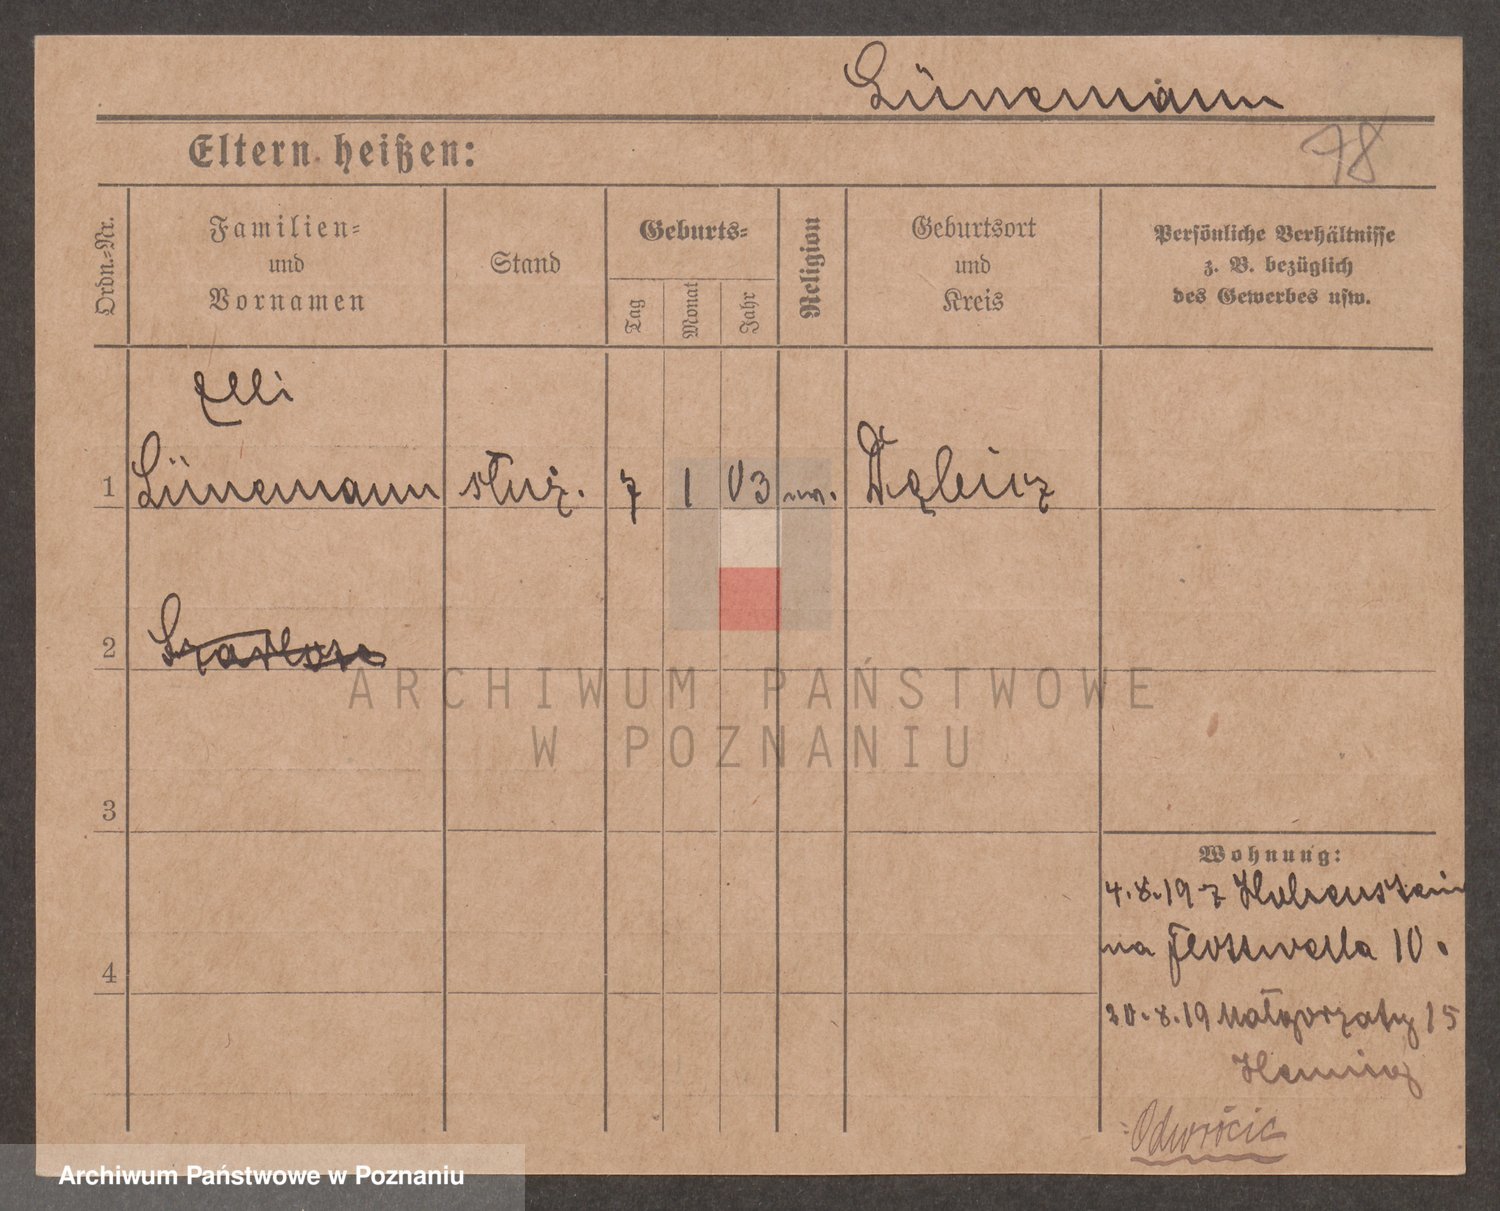 Lünemann
78
Eltern heißen:
Ordn.-Nr.
Familien-
und
Vornamen
Stand
Geburts-
Tag
Monat
Jahr
Religion
Geburtsort
und
Kreis
Persönliche Verhältnisse
z. B. bezüglich
des Gewerbes usw.
Elli
1 Lünemann służ. 7 1 03 ew.
2
ARCHIWUM PAŃSTWOWE
W POZNANIU
3
Wohnung:
4.8.19 z Hohenstein
na Flottwella 10.
4
20.8.19 Małgorzaty 15
Odwrócić
Archiwum Państwowe w Poznaniu